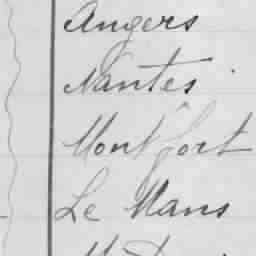 Angers
Nantes
Montfort
Le Mans